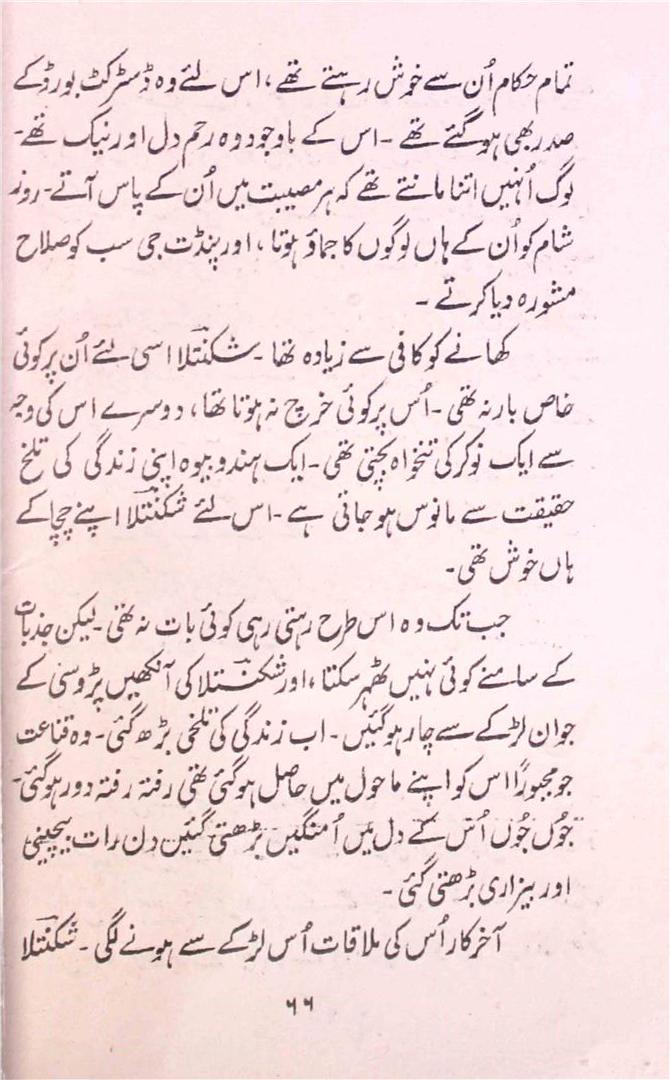 تمام حکام اُن سے خوش رہتے تھے، اس لئے وہ ڈسٹرکٹ بورڈ کے
صدر بھی ہو گئے تھے ۔ اس کے باوجود وہ رحم دل اور نیک تھے۔
لوگ اُنہیں اتنا مانتے تھے کہ ہر مصیبت میں اُن کے پاس آتے۔ روز
شام کو اُن کے ہاں لوگوں کا جماؤ ہوتا، اور پنڈت جی سب کو صلاح
مشورہ دیا کرتے ۔
کھانے کو کافی سے زیادہ تھا ۔ شکنتلا اسی لئے اُن پر کوئی
خاص بار نہ تھی ۔ اُس پر کوئی خرچ نہ ہوتا تھا، دوسرے اس کی وجہ
سے ایک نوکر کی تنخواہ بچتی تھی ۔ ایک ہندو بیوہ اپنی زندگی کی تلخ
حقیقت سے مانوس ہو جاتی ہے ۔ اس لئے شکنتلا اپنے چچا کے
ہاں خوش تھی۔
جب تک وہ اس طرح رہتی رہی کوئی بات نہ تھی ۔ لیکن جذبات
کے سامنے کوئی نہیں ٹھہر سکتا، اور شکنتلا کی آنکھیں پڑوسی کے
جوان لڑکے سے چار ہو گئیں ۔ اب زندگی کی تلخی بڑھ گئی ۔ وہ قناعت
جو مجبوراً اس کو اپنے ماحول میں حاصل ہو گئی تھی رفتہ رفتہ دور ہو گئی۔
جوں جوں اُس کے دل میں اُمنگیں بڑھتی گئیں دن رات بیچینی
اور بیزاری بڑھتی گئی ۔
آخر کار اُس کی ملاقات اُس لڑکے سے ہونے لگی ۔ شکنتلا
۶۶